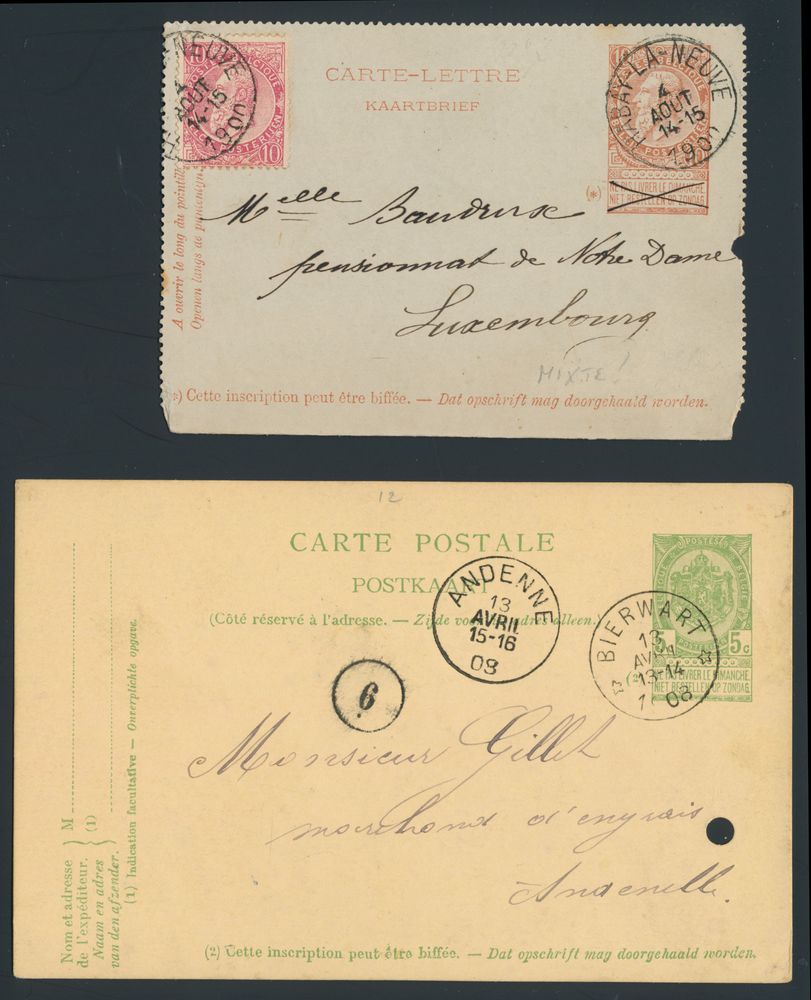 CARTE-LETTRE
KAARTBRIEF
NEUVE
4
AOUT
14-15
1900
10
10
HABAY-LA-NEUVE
4
AOUT
14-15
1900
(*)
NIET BESTELLEN OP ZONDAG
A ouvrir le long du pointillé
Openen langs de
Melle
pensionnat de Notre Dame
Luxembourg
MIXTE!
*) Cette inscription peut être biffée. — Dat opschrift mag doorgehaald worden.
12
CARTE POSTALE
POSTKAART
(Côté réservé à l'adresse. — Zijde alleen.)
ANDENNE
13
AVRIL
15-16
08
BIERWART
13
13-14
1 08
POSTES
5 5c
(2)
LIVRER LE DIMANCHE
NIET BESTELLEN OP ZONDAG
6
Monsieur Gillet
marchand d'engrais
Andenelle.
Nom et adresse
de l'expéditeur.
Naam en adres
van den afzender.
M
(1)
(1) Indication facultative — Onverplichte opgave.
(2) Cette inscription peut être biffée. — Dat opschrift mag doorgehaald worden.